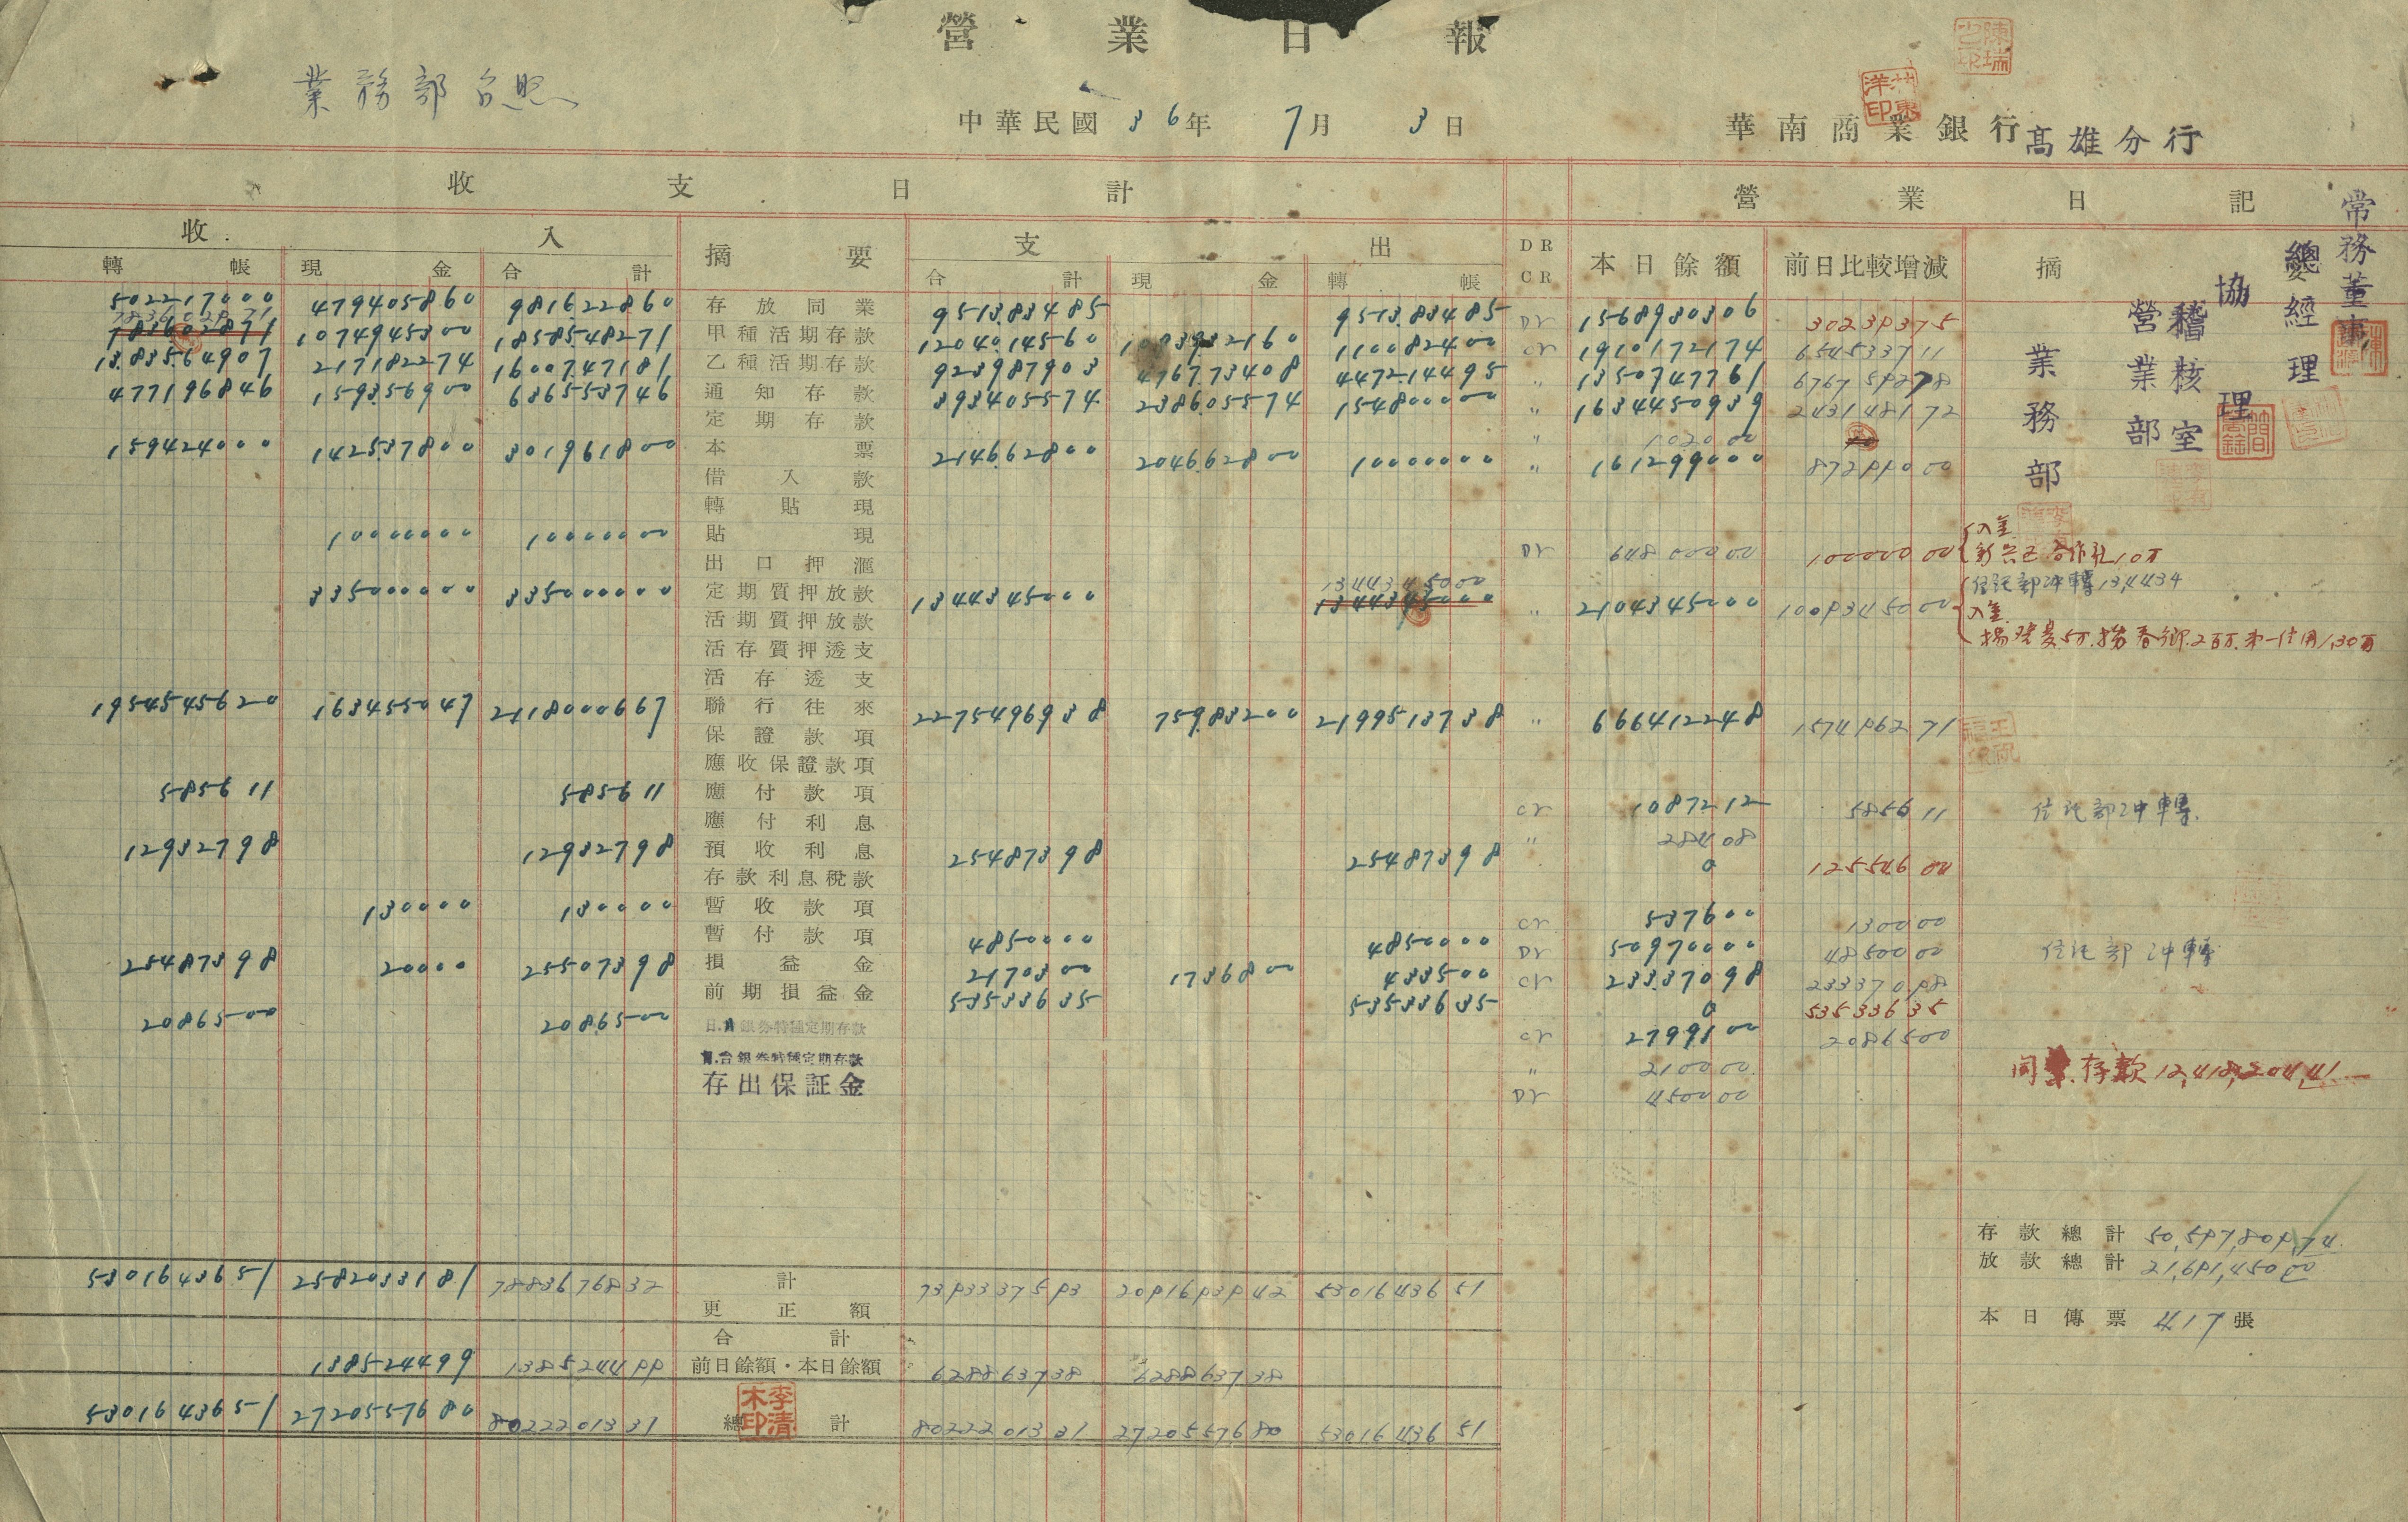 營業日報
業務部台照
中華民國 36年 7月 3日
華南商業銀行高雄分行
收支日計
營業日記
收入 摘要 支出 DR CR 本日餘額 前日比較增減 摘
轉帳 現金 合計 合計 現金 轉帳
常務董事
總經理
協理
稽核室
營業部
業務部
502217000 479405860 981622860 存放同業 951383485 951383485 Dr 1568930306 30239375
783602871 1074945300 1858548271 甲種活期存款 1204014560 1093932160 110082400 Cr 1910172174 654533711
1383564907 217182274 1600747181 乙種活期存款 923987903 476773408 447214495 〃 1350747761 676759278
477196846 159356900 636553746 通知存款 393405574 238605574 154800000 〃 1634450939 243148172
定期存款 〃 102000
159424000 142537800 301961800 本票 214662800 204662800 10000000 〃 161299000 87299000
借入款
轉貼現
10000000 10000000 貼現 Dr 64800000 10000000
入金
新興區合作社10万
出口押滙
335000000 335000000 定期質押放款 1344345000 1344345000 〃 2104345000 1009345000
信託部冲轉 134434
入金
活期質押放款
活存質押透支
活存透支
1954545620 163455047 2118000667 聯行往來 2275496938 75983200 2199513738 〃 666412248 157496271
保證款項
應收保證款項
585611 585611 應付款項 Cr 1087212 585611 信託部冲轉
應付利息 〃 28408
12932798 12932798 預收利息 25487398 25487398 0 12554600
存款利息稅款
130000 130000 暫收款項 Cr 537600 130000
暫付款項 4850000 4850000 Dr 50970000 4850000 信託部冲轉
25487398 20000 25507398 損益金 2170300 1736800 433500 Cr 23337098 23337098
前期損益金 53533635 53533635 0 53533635
2086500 2086500 日銀券特種定期存款 Cr 2799100 2086500
台銀券特種定期存款 〃 210000
存出保証金 Dr 450000
同業存款 12,418,204.41
存款總計 50,597,809.74
放款總計 21,691,450.00
5301643651 2582033181 7883676832 計 7393337593 2091693942 5301643651
更正額
本日傳票 417張
合計
138524499 138524499 前日餘額・本日餘額 628863738 628863738
5301643651 2720557680 8022201331 總計 8022201331 2720557680 5301643651
李清木印